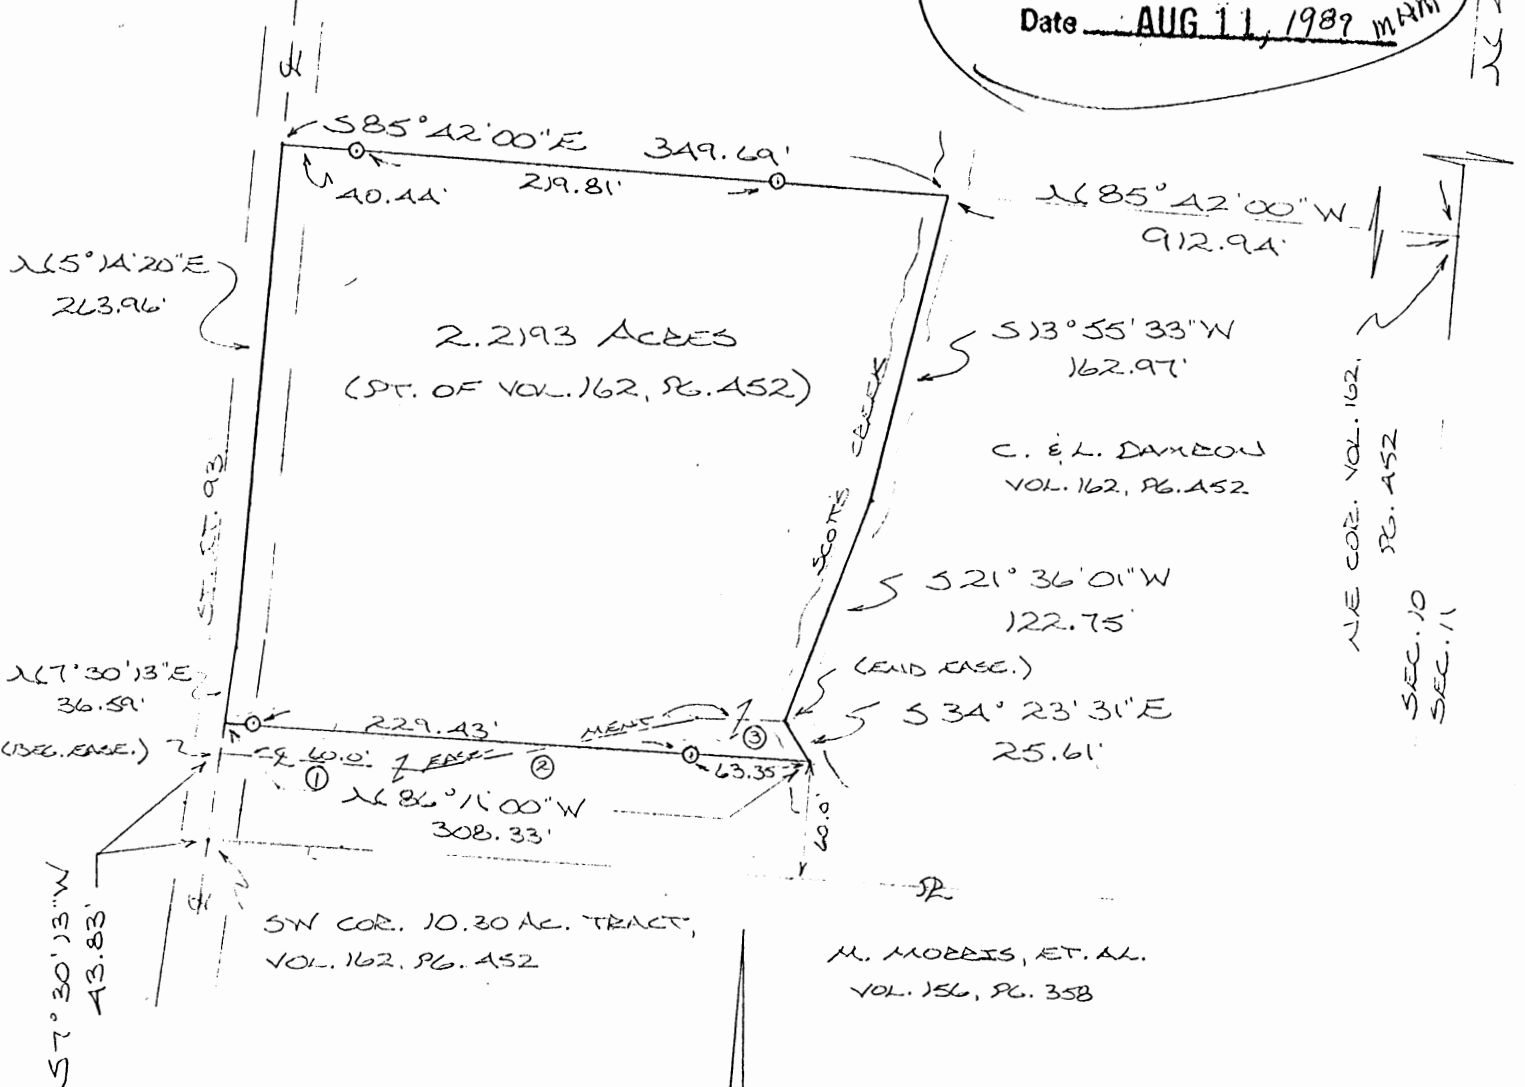 Date AUG 11, 1989 MAM
S 85° 42' 00" E 349.69'
40.44'
219.81'
N 85° 42' 00" W
912.94'
N 5° 14' 20" E
263.96'
2.2193 ACRES
(PT. OF VOL. 162, PG. 452)
S 13° 55' 33" W
162.97'
SCOTTS CREEK
C. & L. DAMRON
VOL. 162, PG. 452
NE COR. VOL. 162,
PG. 452
SEC. 10
SEC. 11
ST. RT. 93
S 21° 36' 01" W
122.75'
(END EASE.)
N 7° 30' 13" E
36.59'
S 34° 23' 31" E
25.61'
229.43'
(BEG. EASE.)
60.0'
EASE-
MENT
①
②
③
63.35'
N 86° 11' 00" W
308.33'
60.0'
S 7° 30' 13" W
43.83'
SW COR. 10.30 AC. TRACT,
VOL. 162, PG. 452
M. MORRIS, ET. AL.
VOL. 156, PG. 358